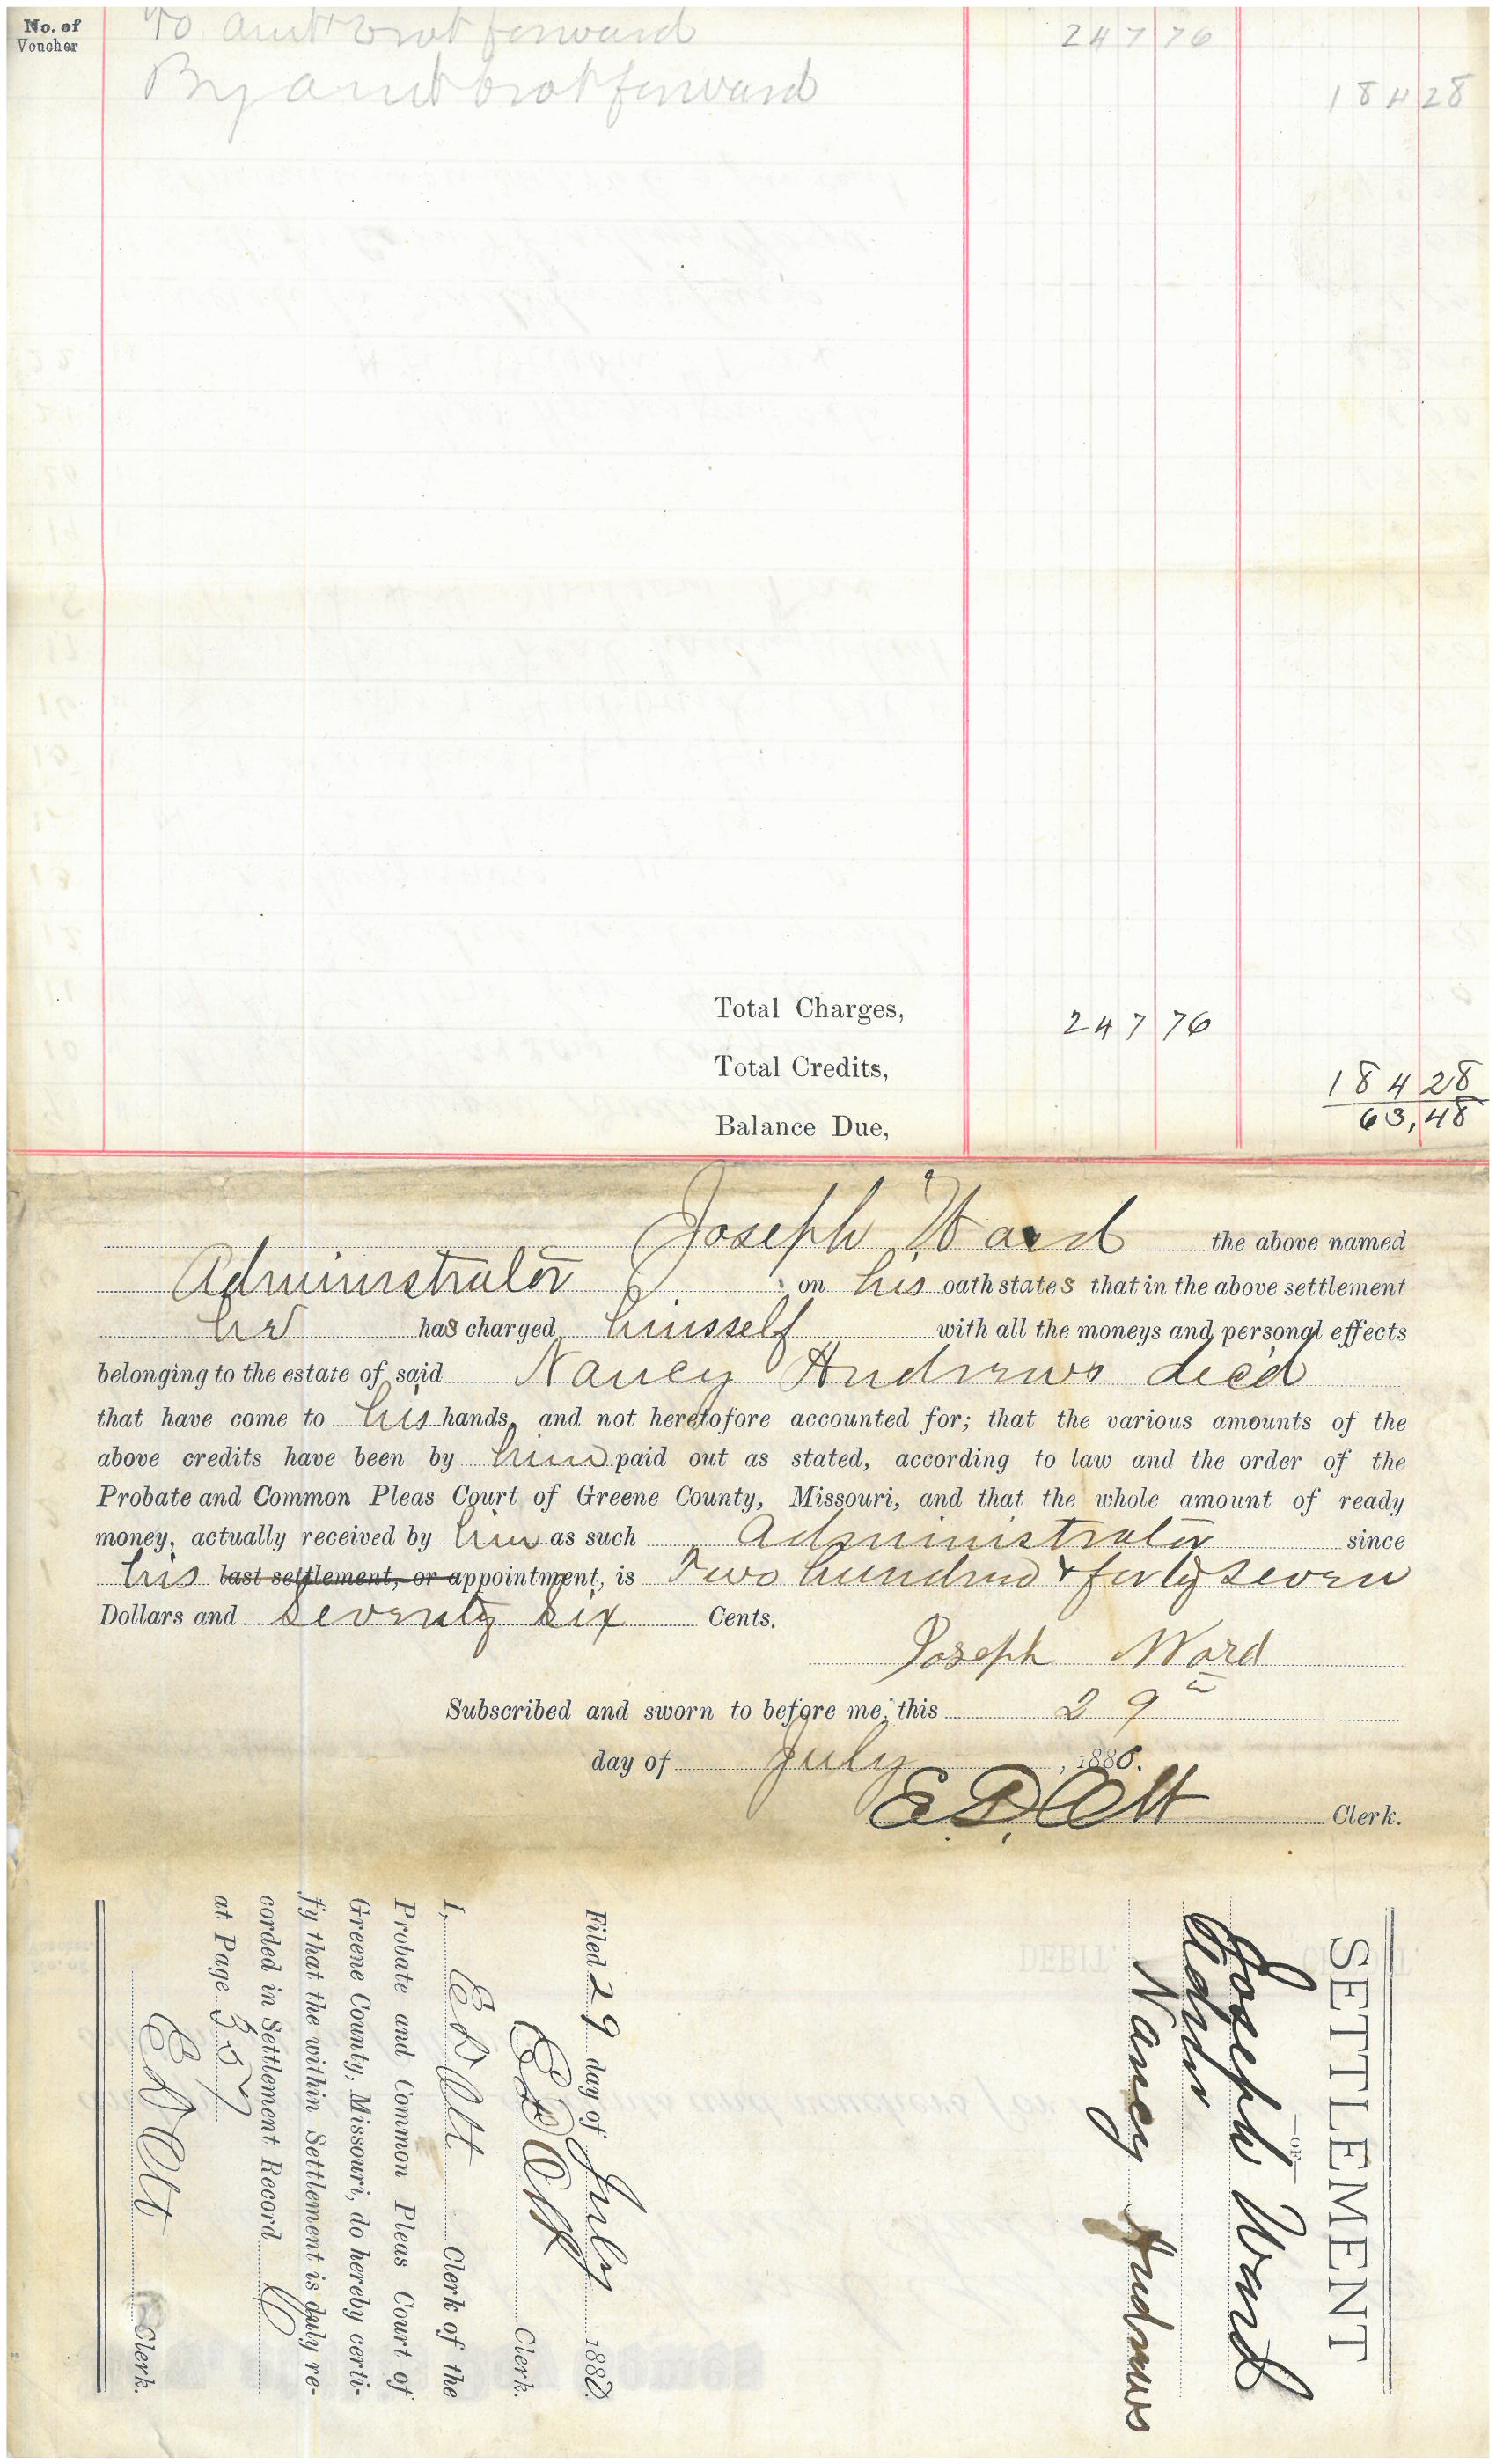 No. of
Voucher
To amt brot forward 247 76
By amt brot forward 184 28
Total Charges, 247 76
Total Credits, 184 28
Balance Due, 63,48
Joseph Ward the above named
Administrator on his oath states that in the above settlement
he has charged himself with all the moneys and personal effects
belonging to the estate of said Nancy Andrews dec'd
that have come to his hands, and not heretofore accounted for; that the various amounts of the
above credits have been by him paid out as stated, according to law and the order of the
Probate and Common Pleas Court of Greene County, Missouri, and that the whole amount of ready
money, actually received by him as such Administrator since
his last settlement, or appointment, is Two hundred & forty seven
Dollars and Seventy Six Cents.
Joseph Ward
Subscribed and sworn to before me, this 29
day of July, 1880.
E. D. Ott Clerk.
SETTLEMENT
OF
Joseph Ward
Admr
Nancy Andrews
Filed 29 day of July 1880.
E D Ott Clerk.
I, E D Ott Clerk of the
Probate and Common Pleas Court of
Greene County, Missouri, do hereby certi-
fy that the within Settlement is duly re-
corded in Settlement Record
at Page 357
E D Ott Clerk.